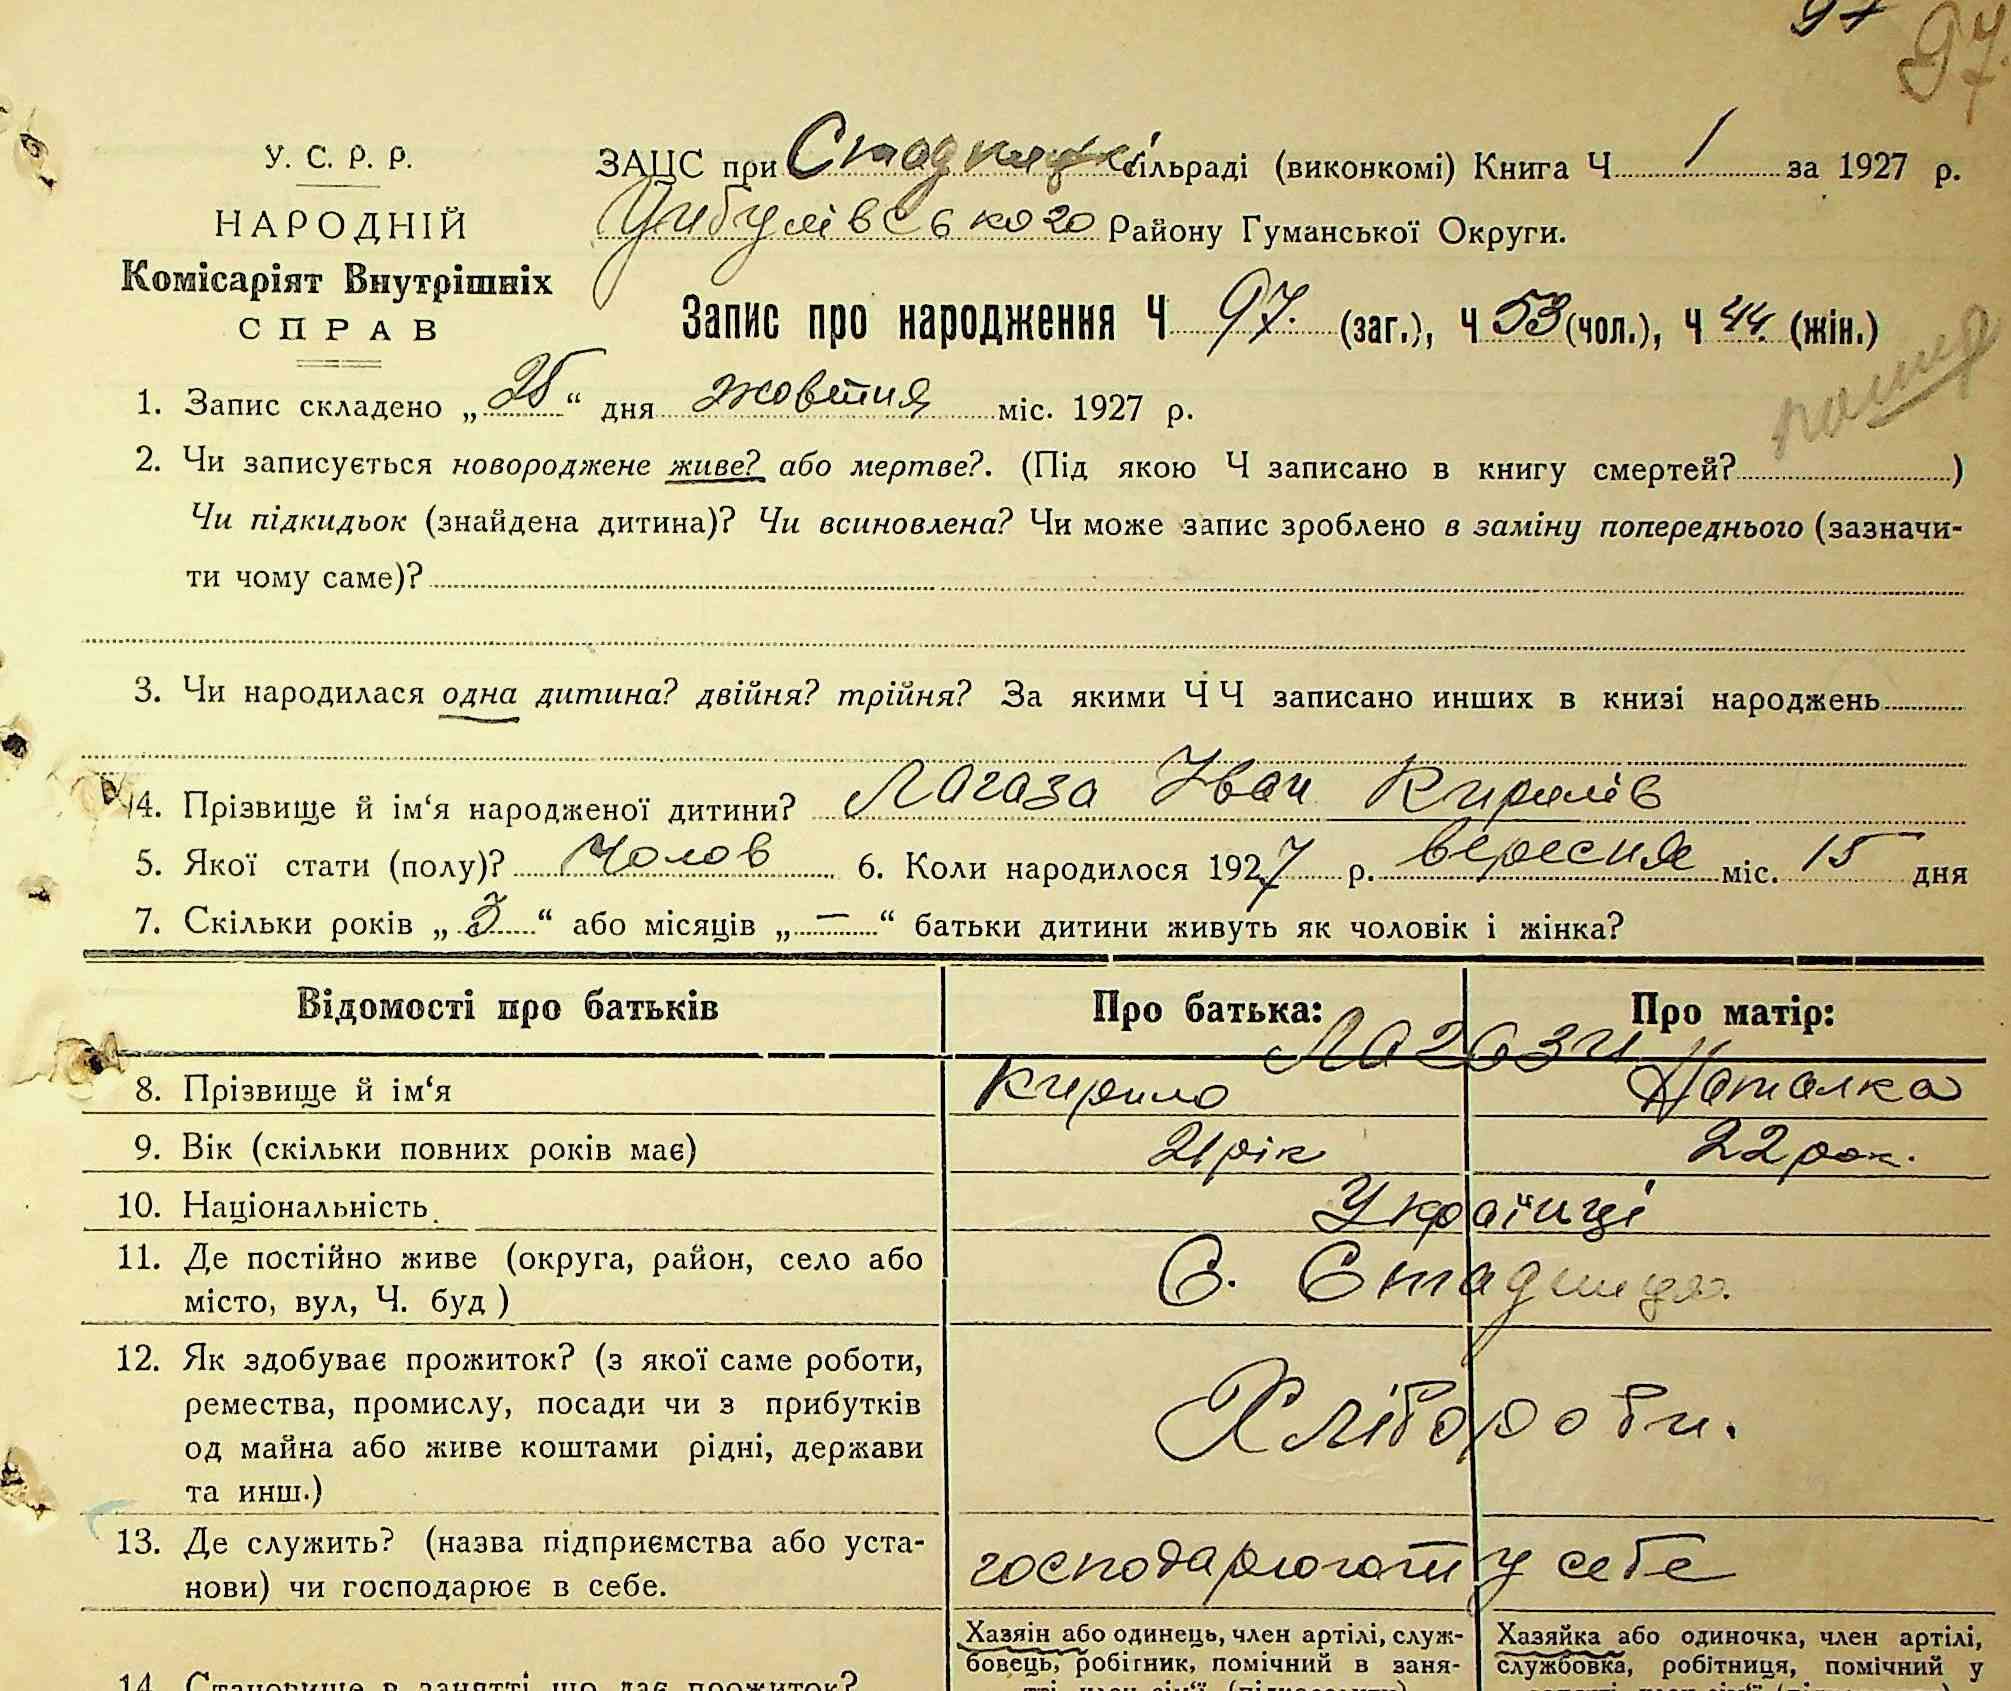 97
97.
У. С. Р. Р.
НАРОДНІЙ
Комісаріят Внутрішніх
СПРАВ
ЗАЦС при Стадницк. сільраді (виконкомі) Книга Ч 1 за 1927 р.
Цибулівського Району Гуманської Округи.
Запис про народження Ч 97. (заг.), Ч 53 (чол.), Ч 44. (жін.)
1. Запис складено „25“ дня жовтня міс. 1927 р.
2. Чи записується новороджене живе? або мертве?. (Під якою Ч записано в книгу смертей? )
Чи підкидьок (знайдена дитина)? Чи всиновлена? Чи може запис зроблено в заміну попереднього (зазначи-
ти чому саме)?
3. Чи народилася одна дитина? двійня? трійня? За якими ЧЧ записано инших в книзі народжень
4. Прізвище й ім‘я народженої дитини? Лагаза Іван Кирилів
5. Якої стати (полу)? Чолов 6. Коли народилося 1927 р. вересня міс. 15 дня
7. Скільки років „3“ або місяців „—“ батьки дитини живуть як чоловік і жінка?
Відомості про батьків Про батька: Про матір:
Лагази
8. Прізвище й ім‘я Кирило Наталка
9. Вік (скільки повних років має) 21 рік 22 рок.
10. Національність Українці
11. Де постійно живе (округа, район, село або
місто, вул, Ч. буд ) С. Стадниця.
12. Як здобуває прожиток? (з якої саме роботи,
ремества, промислу, посади чи з прибутків
од майна або живе коштами рідні, держави
та инш.) Хлібороби.
13. Де служить? (назва підприємства або уста-
нови) чи господарює в себе. господарюють у себе
Хазяін або одинець, член артілі, служ- Хазяйка або одиночка, член артілі,
бовець, робігник, помічний в заня- службовка, робітниця, помічний у
14. Становище в занятті що дає прожиток?